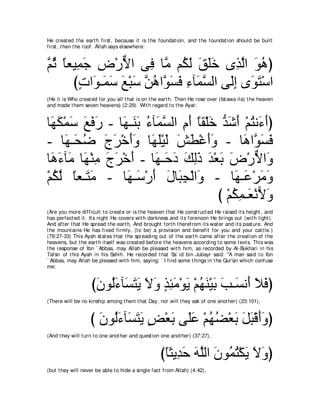 He created the earth first, because it is the foundation, and the foundation should be built
first, then the roof. Allah says elsewhere:
﴿هُوَ الَّذِى خَلَقَ لَكُم مَّا فِى الاٌّرْضِ جَمِيعاً ثُمَّ
اسْتَوَى إِلَى السَّمَآءِ فَسَوَّاهُنَّ سَبْعَ سَمَـوَاتٍ﴾
(He it is Who created for you all that is on the earth. Then He rose over (Istawa ila) the heaven
and made them seven heavens) (2:29). With regard to the Ayat:
﴿أَءَنتُمْ أَشَدُّ خَلْقاً أَمِ السَّمَآءُ بَنَـهَا - رَفَعَ سَمْكَهَا
فَسَوَّاهَا - وَأَغْطَشَ لَيْلَهَا وَأَخْرَجَ ضُحَـهَا -
وَالاٌّرْضَ بَعْدَ ذَلِكَ دَحَـهَا - أَخْرَجَ مِنْهَا مَآءَهَا
وَمَرْعَـهَا - وَالْجِبَالَ أَرْسَـهَا - مَتَـعاً لَّكُمْ
وَلاًّنْعَـمِكُمْ ﴾
(Are you more difficult to create or is the heaven that He constructed He raised its height, and
has perfected it. Its night He covers with darkness and its forenoon He brings out (with light).
And after that He spread the earth, And brought forth therefrom its water and its pasture. And
the mountains He has fixed firmly, (to be) a provision and benefit for you and your cattle.)
(79:27-33) This Ayah states that the spreading out of the earth came after the creation of the
heavens, but the earth itself was created before the heavens according to some texts. This was
the response of Ibn `Abbas, may Allah be pleased with him, as recorded by Al-Bukhari in his
Tafsir of this Ayah in his Sahih. He recorded that Sa`id bin Jubayr said: "A man said to Ibn
`Abbas, may Allah be pleased with him, saying: `I find some things in the Qur'an which confuse
me:
﴿فَلاَ أَنسَـبَ بَيْنَهُمْ يَوْمَئِذٍ وَلاَ يَتَسَآءَلُونَ﴾
(There will be no kinship among them that Day, nor will they ask of one another) (23:101),
﴿وَأَقْبَلَ بَعْضُهُمْ عَلَى بَعْضٍ يَتَسَآءَلُونَ ﴾
(And they will turn to one another and question one another) (37:27),
﴿وَلاَ يَكْتُمُونَ اللَّهَ حَدِيثاً﴾
(but they will never be able to hide a single fact from Allah) (4:42),